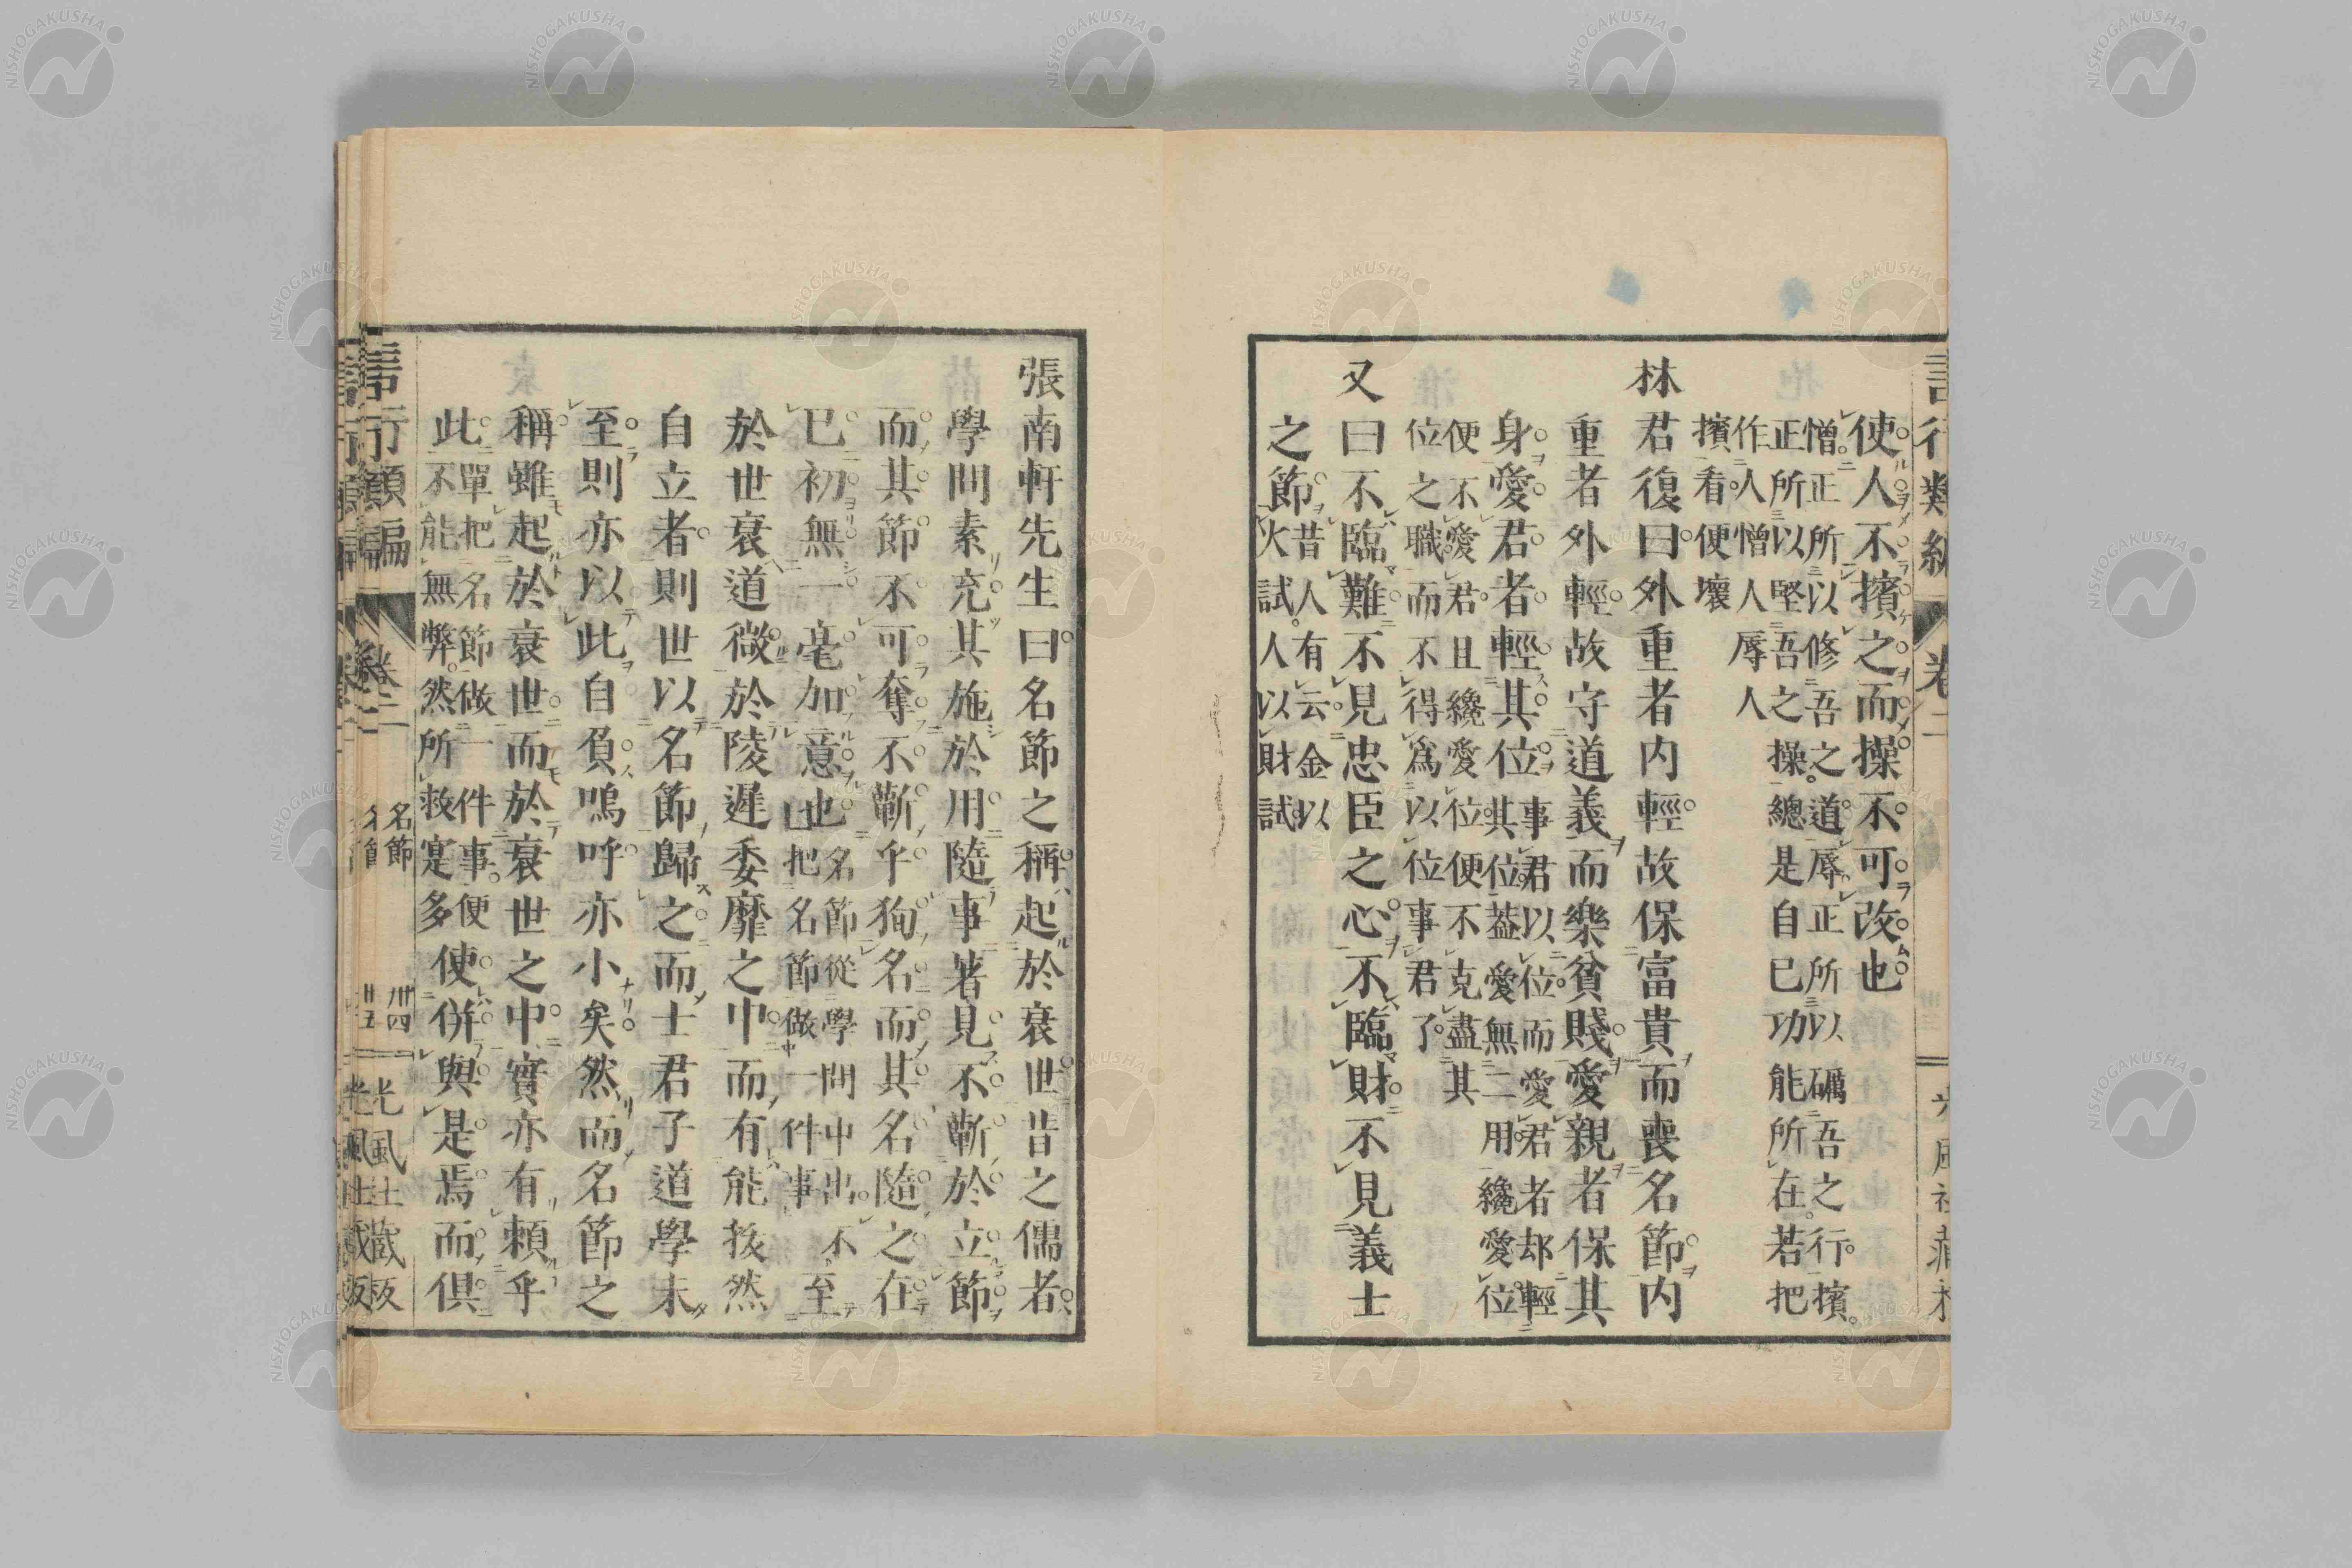 言行類編 卷二
使人不擯之而操不可改也
憎正所以修吾之道。辱正所以礪吾之行。擯
正所以堅吾之操。總是自已功能所在。若把
作人憎人辱人
擯看。便壞
林君復曰。外重者内輕。故保富貴而喪名節。内
重者外輕。故守道義而樂貧賤。愛親者保其
身。愛君者輕其位
事君以位。而愛君者却輕
其位。葢愛無二用。纔愛位
便不愛君。且纔愛位。便不克盡其
位之職。而不得爲以位事君了。
又曰不臨難。不見忠臣之心。不臨財。不見義士
之節
昔人有云。金以
火試。人以財試。
張南軒先生曰。名節之稱。起於衰世。昔之儒者。
學問素充。其施於用。隨事著見。不蘄於立節
而其節不可奪。不蘄乎狥名。而其名隨之。在
已初無一毫加意也
名節從學問中出。不至
把名節做一件事
於世衰道微。於陵遲委靡之中。而有能拔然
自立者。則世以名節歸之。而士君子道學未
至。則亦以此自負。嗚呼亦小矣。然而名節之
稱。雖起於衰世。而於衰世之中。實亦有頼乎
此
單把名節做一件事。便
不能無弊。然所救寔多
使併與是焉而俱
言行類編 卷二 名節 卅四 光風社藏板